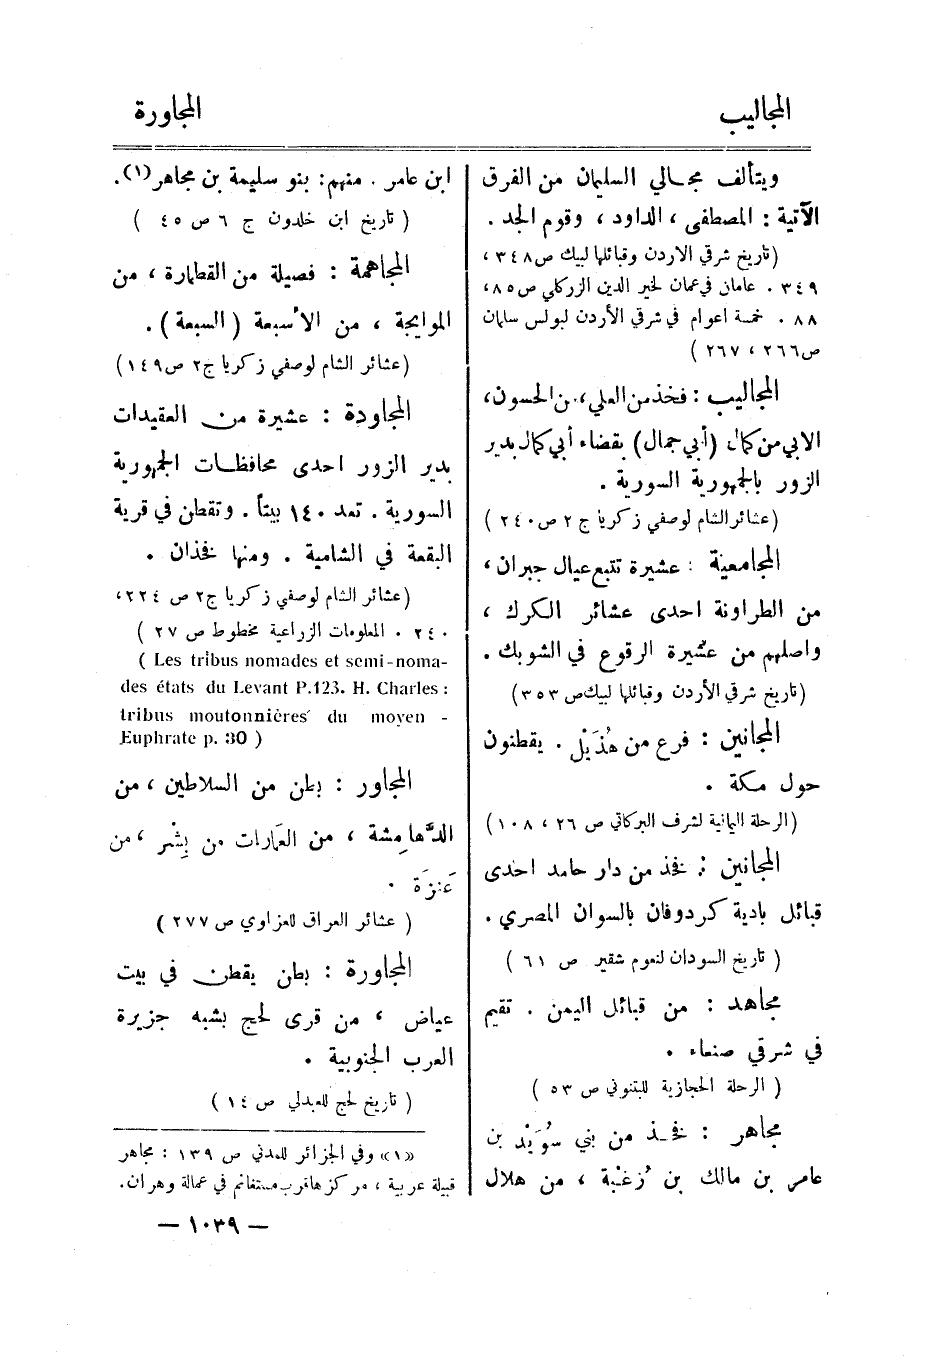 المجاليب
المجاورة
ويتألف مجالي السليمان من الفرق
الآتية : المصطفى ، الداود ، وقوم الجد .
(تاريخ شرقي الاردن وقبائلها لبيك ص٣٤٨ ،
٣٤٩ . عامان في عمان لخير الدين الزركلي ص٨٥ ،
٨٨ . خمسة اعوام في شرقي الأردن لبولس سلمان
ص٢٦٦ ، ٢٦٧ )
المجاليب : فخذ من العلي ، من الحسون ،
الابي من كمال (أبي جمال) بقضاء أبي كمال بدير
الزور بالجمهورية السورية .
(عشائر الشام لوصفي زكريا ج ٢ ص ٢٤٠ )
المجامعيّة : عشيرة تتبع عيال جبران ،
من الطراونة احدى عشائر الكرك ،
واصلهم من عشيرة الرقوع في الشوبك .
(تاريخ شرقي الأردن وقبائلها لبيك ص ٣٥٣)
المجانين : فرع من هُذَيْل . يقطنون
حول مكة .
(الرحلة اليمانية لشرف البركاتي ص ٢٦ ، ١٠٨ )
المجانين : فخذ من دار حامد احدى
قبائل بادية كردوفان بالسوان المصري .
( تاريخ السودان لنعوم شقير ص ٦١ )
مجاهد : من قبائل اليمن . تقيم
في شرقي صنعاء .
( الرحلة الحجازية للبتنوني ص ٥٣ )
مجاهر : فخذ من بني سُوَيْد بن
عامر بن مالك بن زُغْبَة ، من هلال
ابن عامر . منهم : بنو سليمة بن مجاهر(١).
( تاريخ ابن خلدون ج ٦ ص ٤٥ )
المجاهمة : فصيلة من القطارة ، من
الموايجة ، من الأسبعة (السبعة) .
(عشائر الشام لوصفي زكريا ج٢ ص١٤٩)
المجاودة : عشيرة من العقيدات
بدير الزور احدى محافظات الجمهورية
السورية . تعد ١٤٠ بيتاً . وتقطن في قرية
البقعة في الشامية . ومنها فخذان .
(عشائر الشام لوصفي زكريا ج٢ ص ٢٢٤ ،
٢٤٠ . المعلومات الزراعية مخطوط ص ٢٧ )
( Les tribus nomades et semi-noma-
des états du Levant P.123. H. Charles :
tribus moutonnières du moyen -
Euphrate p. 30 )
المجاور : بطن من السلاطين ، من
الدَّهامِشة ، من العَمَارات من بِشْر ، من
عَنزَة .
( عشائر العراق للعزاوي ص ٢٧٧ )
المجاورة : بطن يقطن في بيت
عياض ، من قرى لحج بشبه جزيرة
العرب الجنوبية .
( تاريخ لحج للعبدلي ص ١٤ )
«١» وفي الجزائر للمدني ص ١٣٩ : مجاهر
قبيلة عربية ، مركزها قرب مستغانم في عمالة وهران .
— ١٠٣٩ —